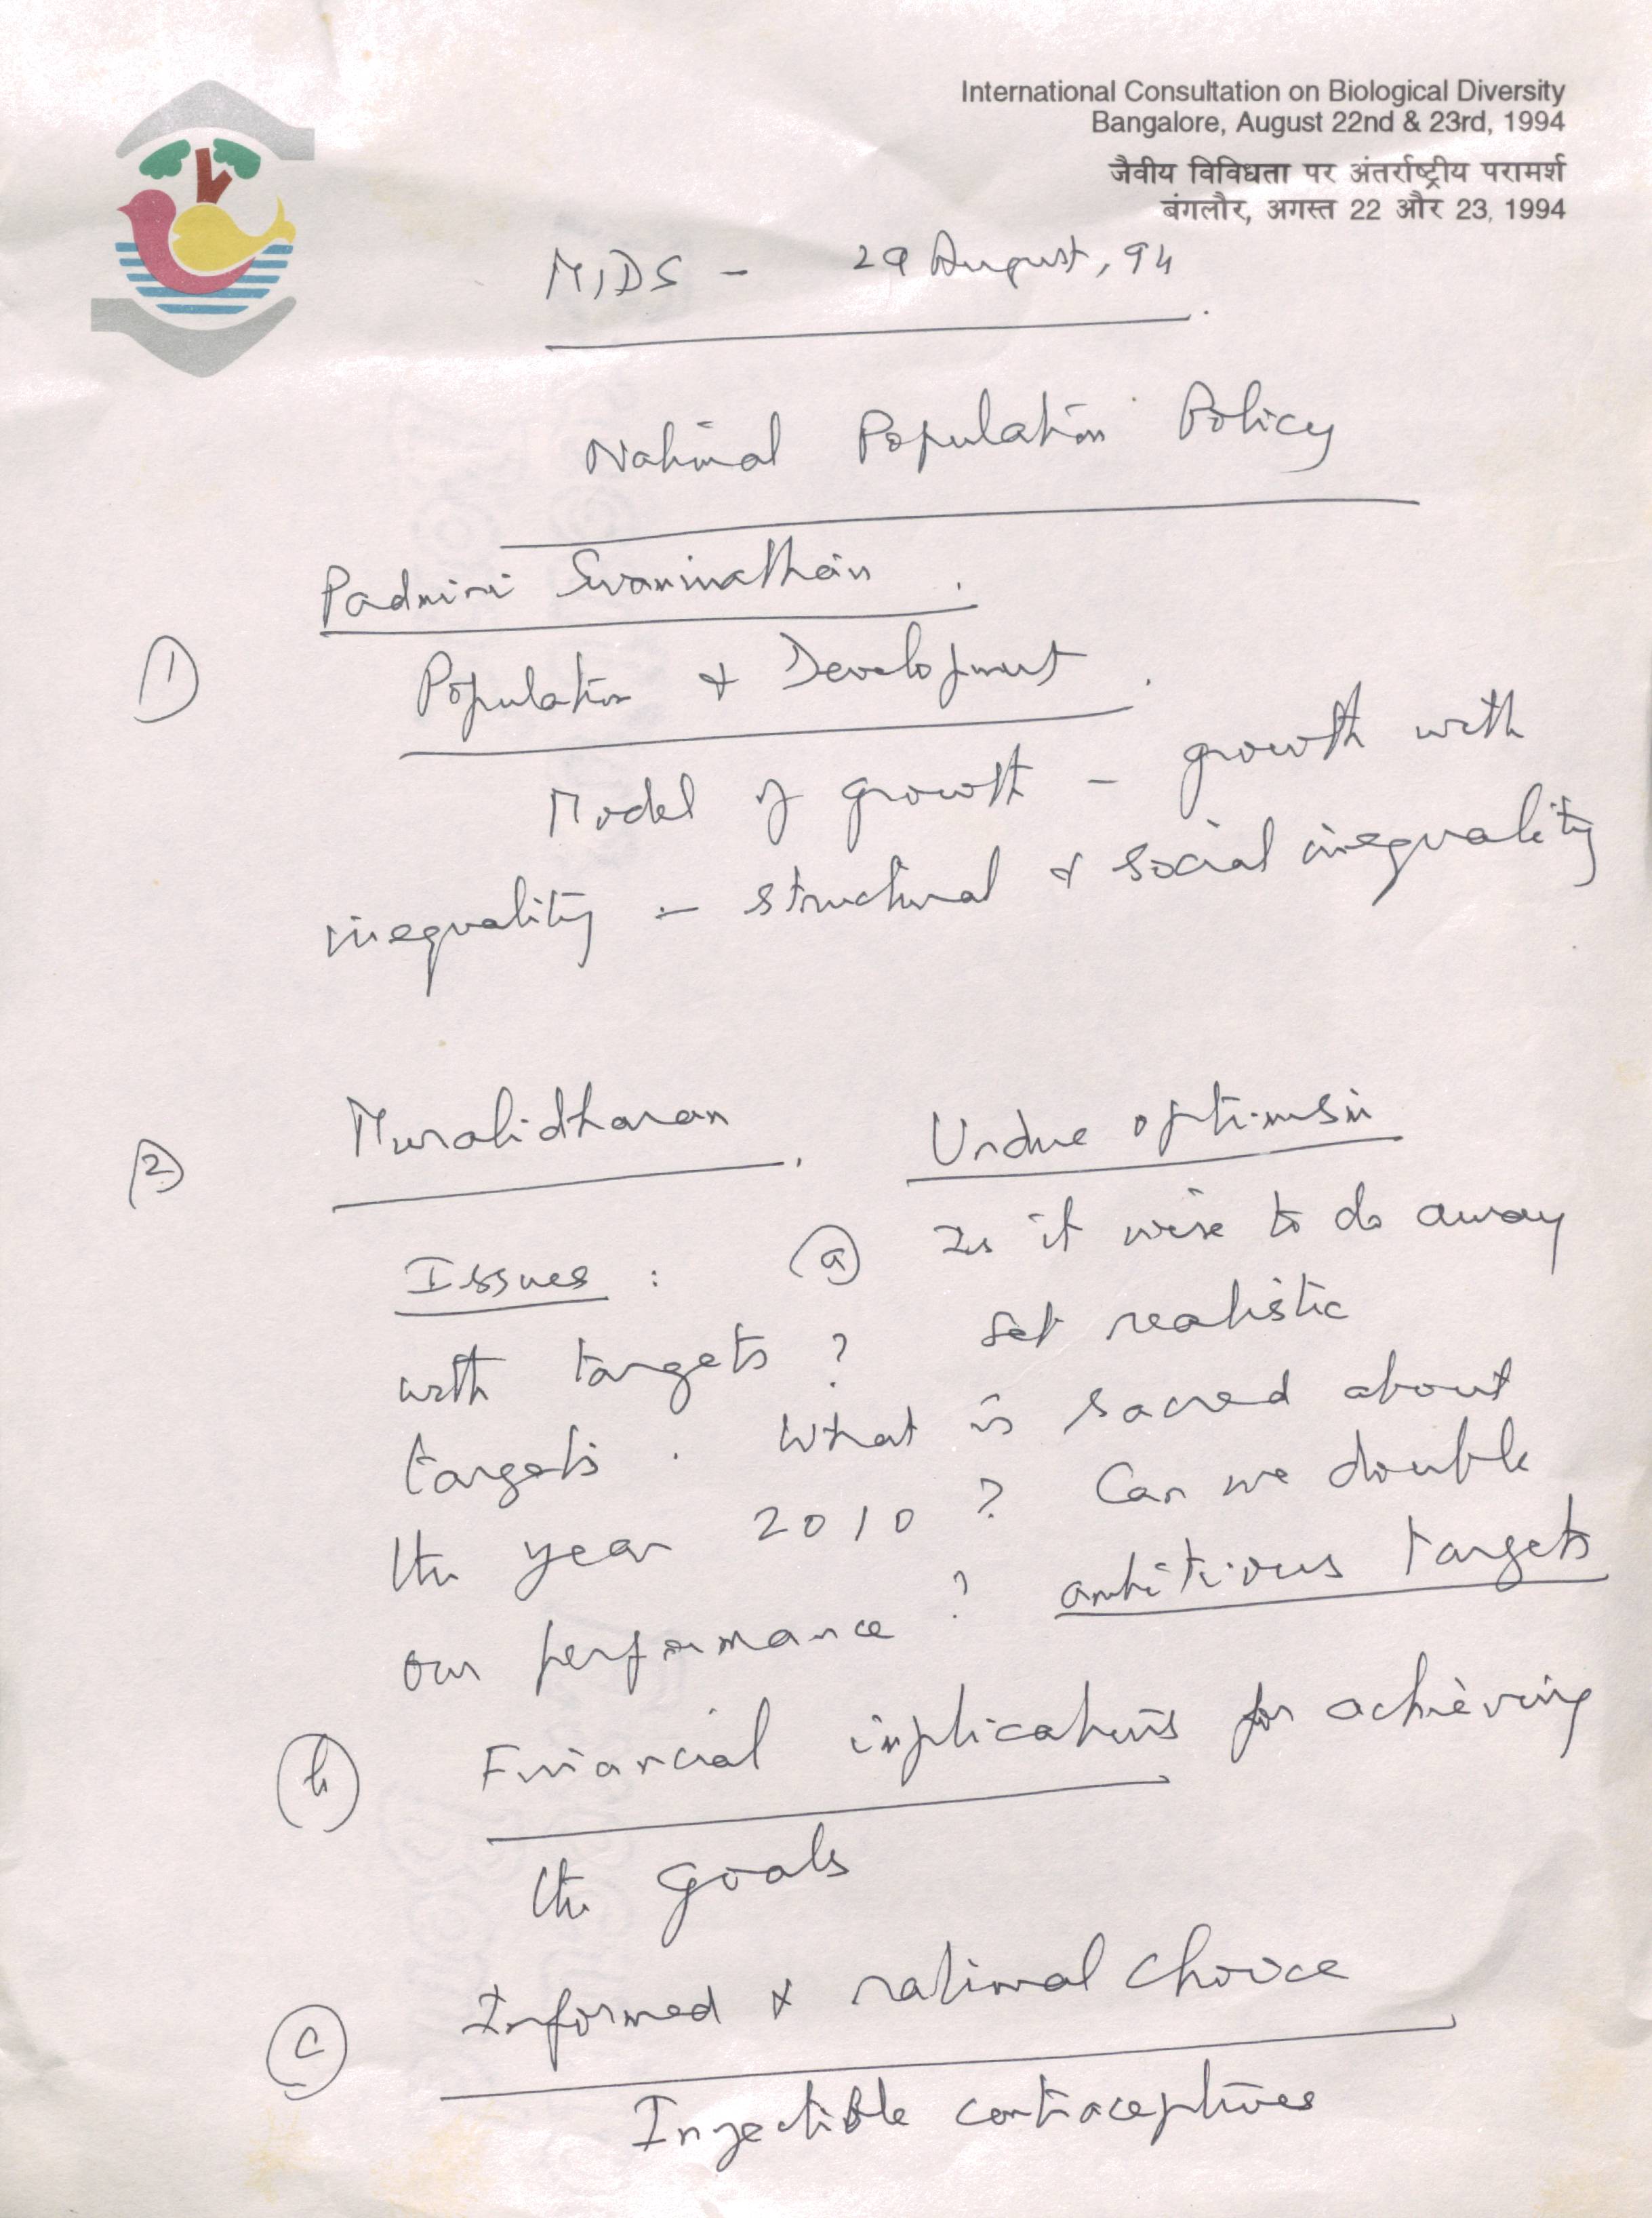 International Consultation on Biological Diversity
Bangalore, August 22nd & 23rd, 1994
जैवीय विविधता पर अंतर्राष्ट्रीय परामर्श
बंगलौर, अगस्त 22 और 23, 1994
MIDS - 29 August, 94
National Population Policy
Padmini Swaminathan.
① Population & Development.
Model of growth - growth with
inequality - structural & social inequality
② Muralidharan. Undue optimism
Issues: ⓐ Is it wise to do away
with targets? Set realistic
targets. What is sacred about
the year 2010? Can we double
our performance? ambitious targets
ⓑ Financial implications for achieving
the goals
ⓒ Informed & rational choice
Injectible contraceptives